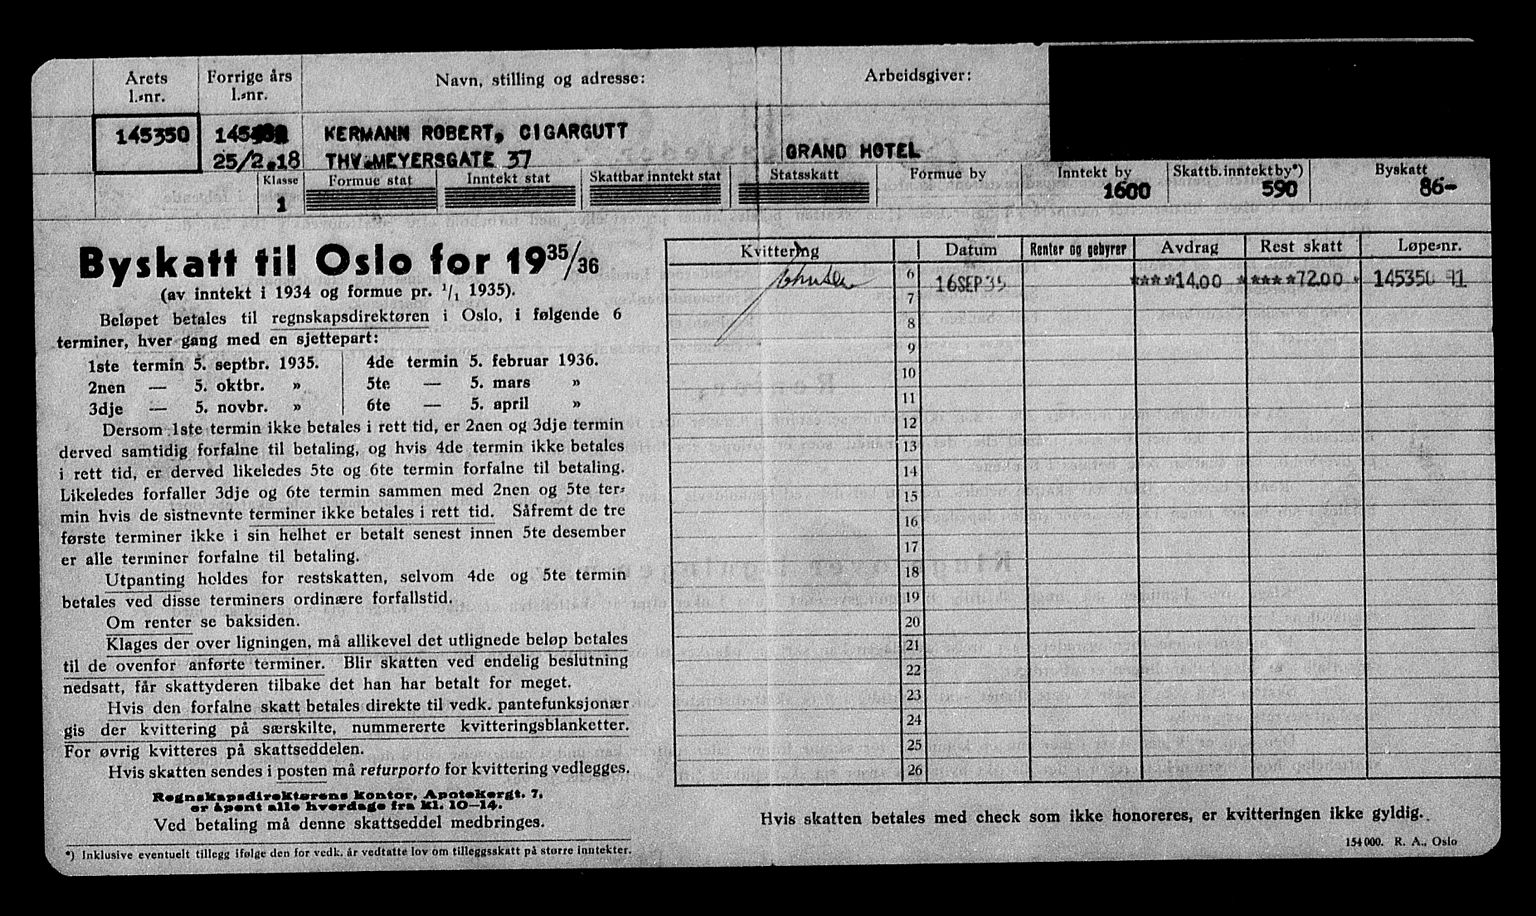 Årets l.-nr.
Forrige års l.-nr.
Navn, stilling og adresse:
Arbeidsgiver:
145350
KERMANN ROBERT, CIGARGUTT
25/2.18 THV.MEYERSGATE 37
GRAND HOTEL
Klasse
1
Formue stat
Inntekt stat
Skattbar inntekt stat
Statsskatt
Formue by
Inntekt by
1600
Skattb.inntekt by*)
590
Byskatt
86-
Byskatt til Oslo for 1935/36
(av inntekt i 1934 og formue pr. 1/1 1935).
Beløpet betales til regnskapsdirektøren i Oslo, i følgende 6
terminer, hver gang med en sjettepart:
1ste termin 5. septbr. 1935. 4de termin 5. februar 1936.
2nen — 5. oktbr. » 5te — 5. mars »
3dje — 5. novbr. » 6te — 5. april »
Dersom 1ste termin ikke betales i rett tid, er 2nen og 3dje termin
derved samtidig forfalne til betaling, og hvis 4de termin ikke betales
i rett tid, er derved likeledes 5te og 6te termin forfalne til betaling.
Likeledes forfaller 3dje og 6te termin sammen med 2nen og 5te ter-
min hvis de sistnevnte terminer ikke betales i rett tid. Såfremt de tre
første terminer ikke i sin helhet er betalt senest innen 5te desember
er alle terminer forfalne til betaling.
Utpanting holdes for restskatten, selvom 4de og 5te termin
betales ved disse terminers ordinære forfallstid.
Om renter se baksiden.
Klages der over ligningen, må allikevel det utlignede beløp betales
til de ovenfor anførte terminer. Blir skatten ved endelig beslutning
nedsatt, får skattyderen tilbake det han har betalt for meget.
Hvis den forfalne skatt betales direkte til vedk. pantefunksjonær
gis der kvittering på særskilte, nummererte kvitteringsblanketter.
For øvrig kvitteres på skattseddelen.
Hvis skatten sendes i posten må returporto for kvittering vedlegges.
Regnskapsdirektørens kontor, Apotekergt. 7,
er åpent alle hverdage fra kl. 10-14.
Ved betaling må denne skattseddel medbringes.
*) Inklusive eventuelt tillegg ifølge den for vedk. år vedtatte lov om tilleggsskatt på større inntekter.
Kvittering
Datum
Renter og gebyrer
Avdrag
Rest skatt
Løpe-nr.
6 16 SEP 35 ****14.00 ****72.00 * 145350 91
7
8
9
10
11
12
13
14
15
16
17
18
19
20
21
22
23
24
25
26
Hvis skatten betales med check som ikke honoreres, er kvitteringen ikke gyldig.
154000. R. A., Oslo